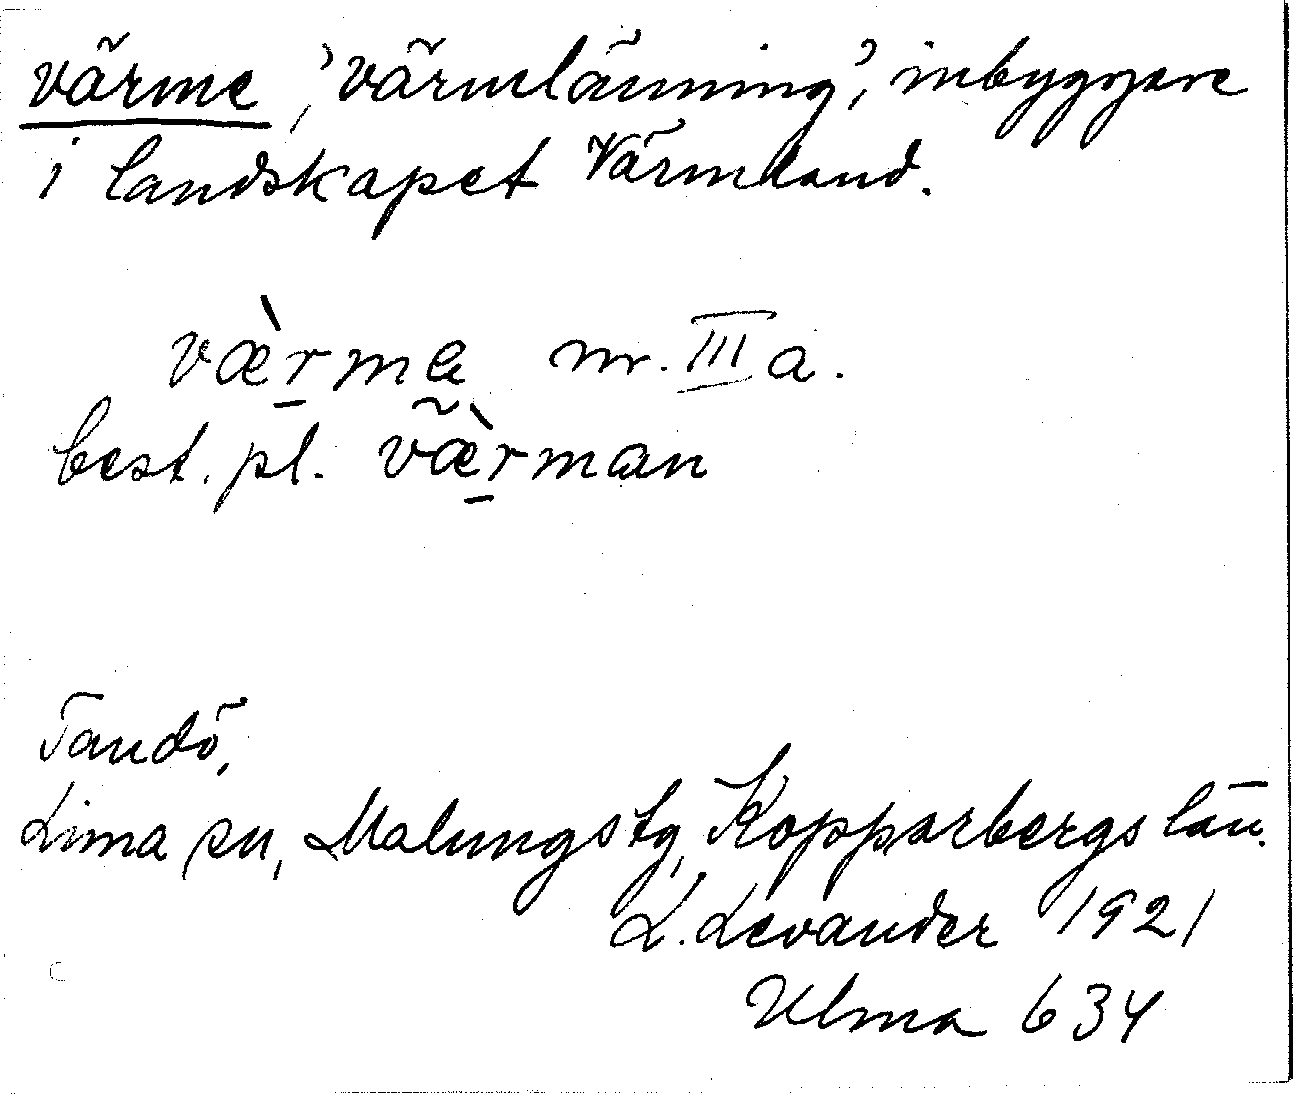 värme, 'värmlänning', inbyggare
i landskapet Värmland.
væ̀r̠mə m. III a.
best. pl. væ̃̀r̠man
Tandö,
Lima sn, Malungs tg, Kopparbergs län.
L. Levander 1921
Ulma 634